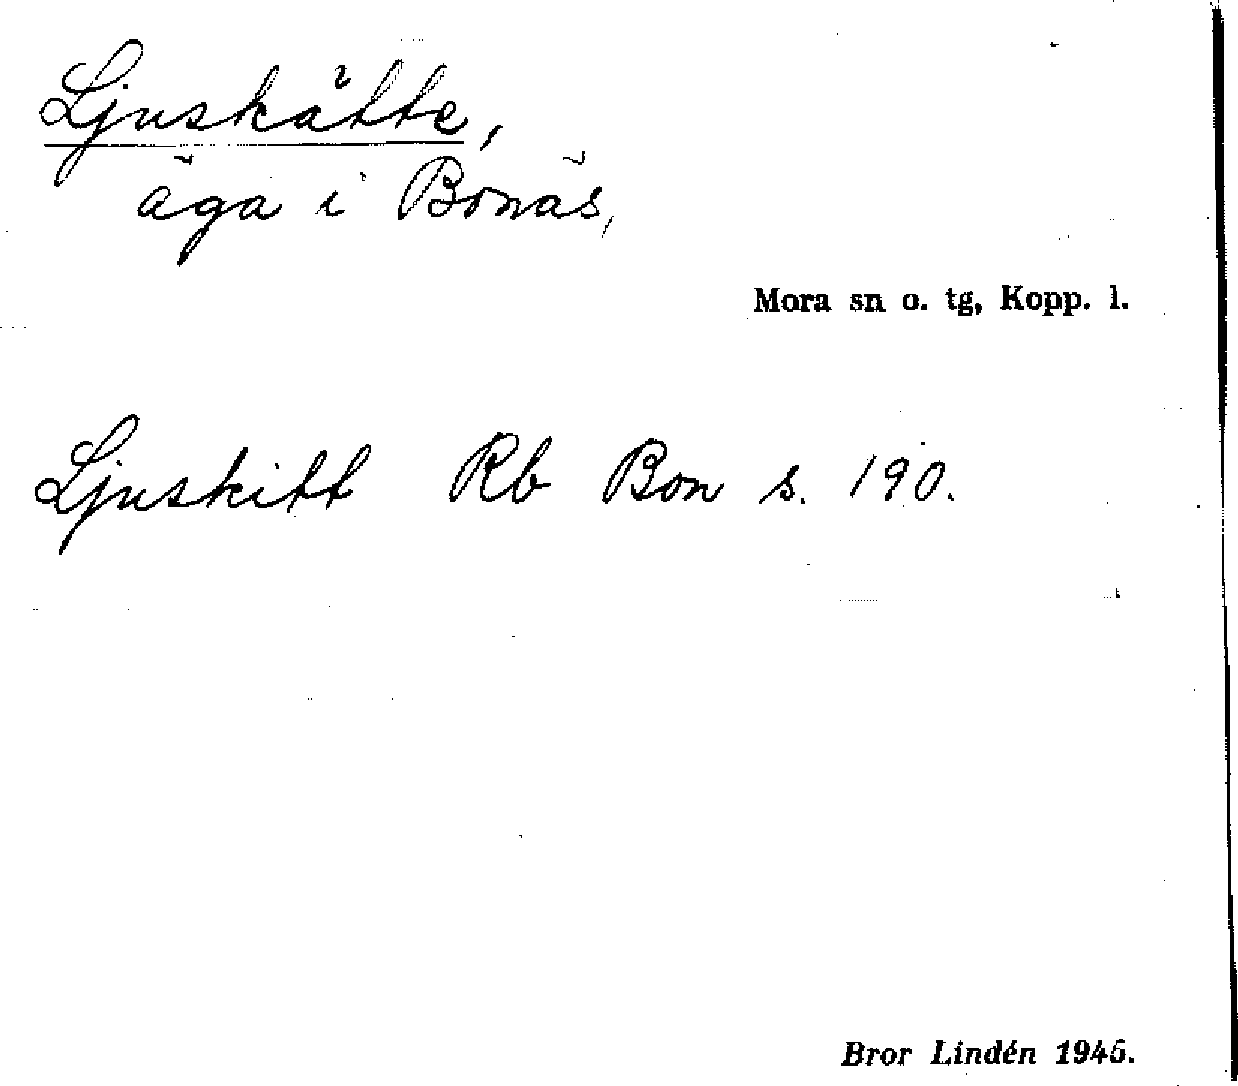 Ljuskätte,
äga i Bonäs,
Mora sn o. tg, Kopp. l.
Ljuskitt Rb Bon s. 190.
Bror Lindén 1945.